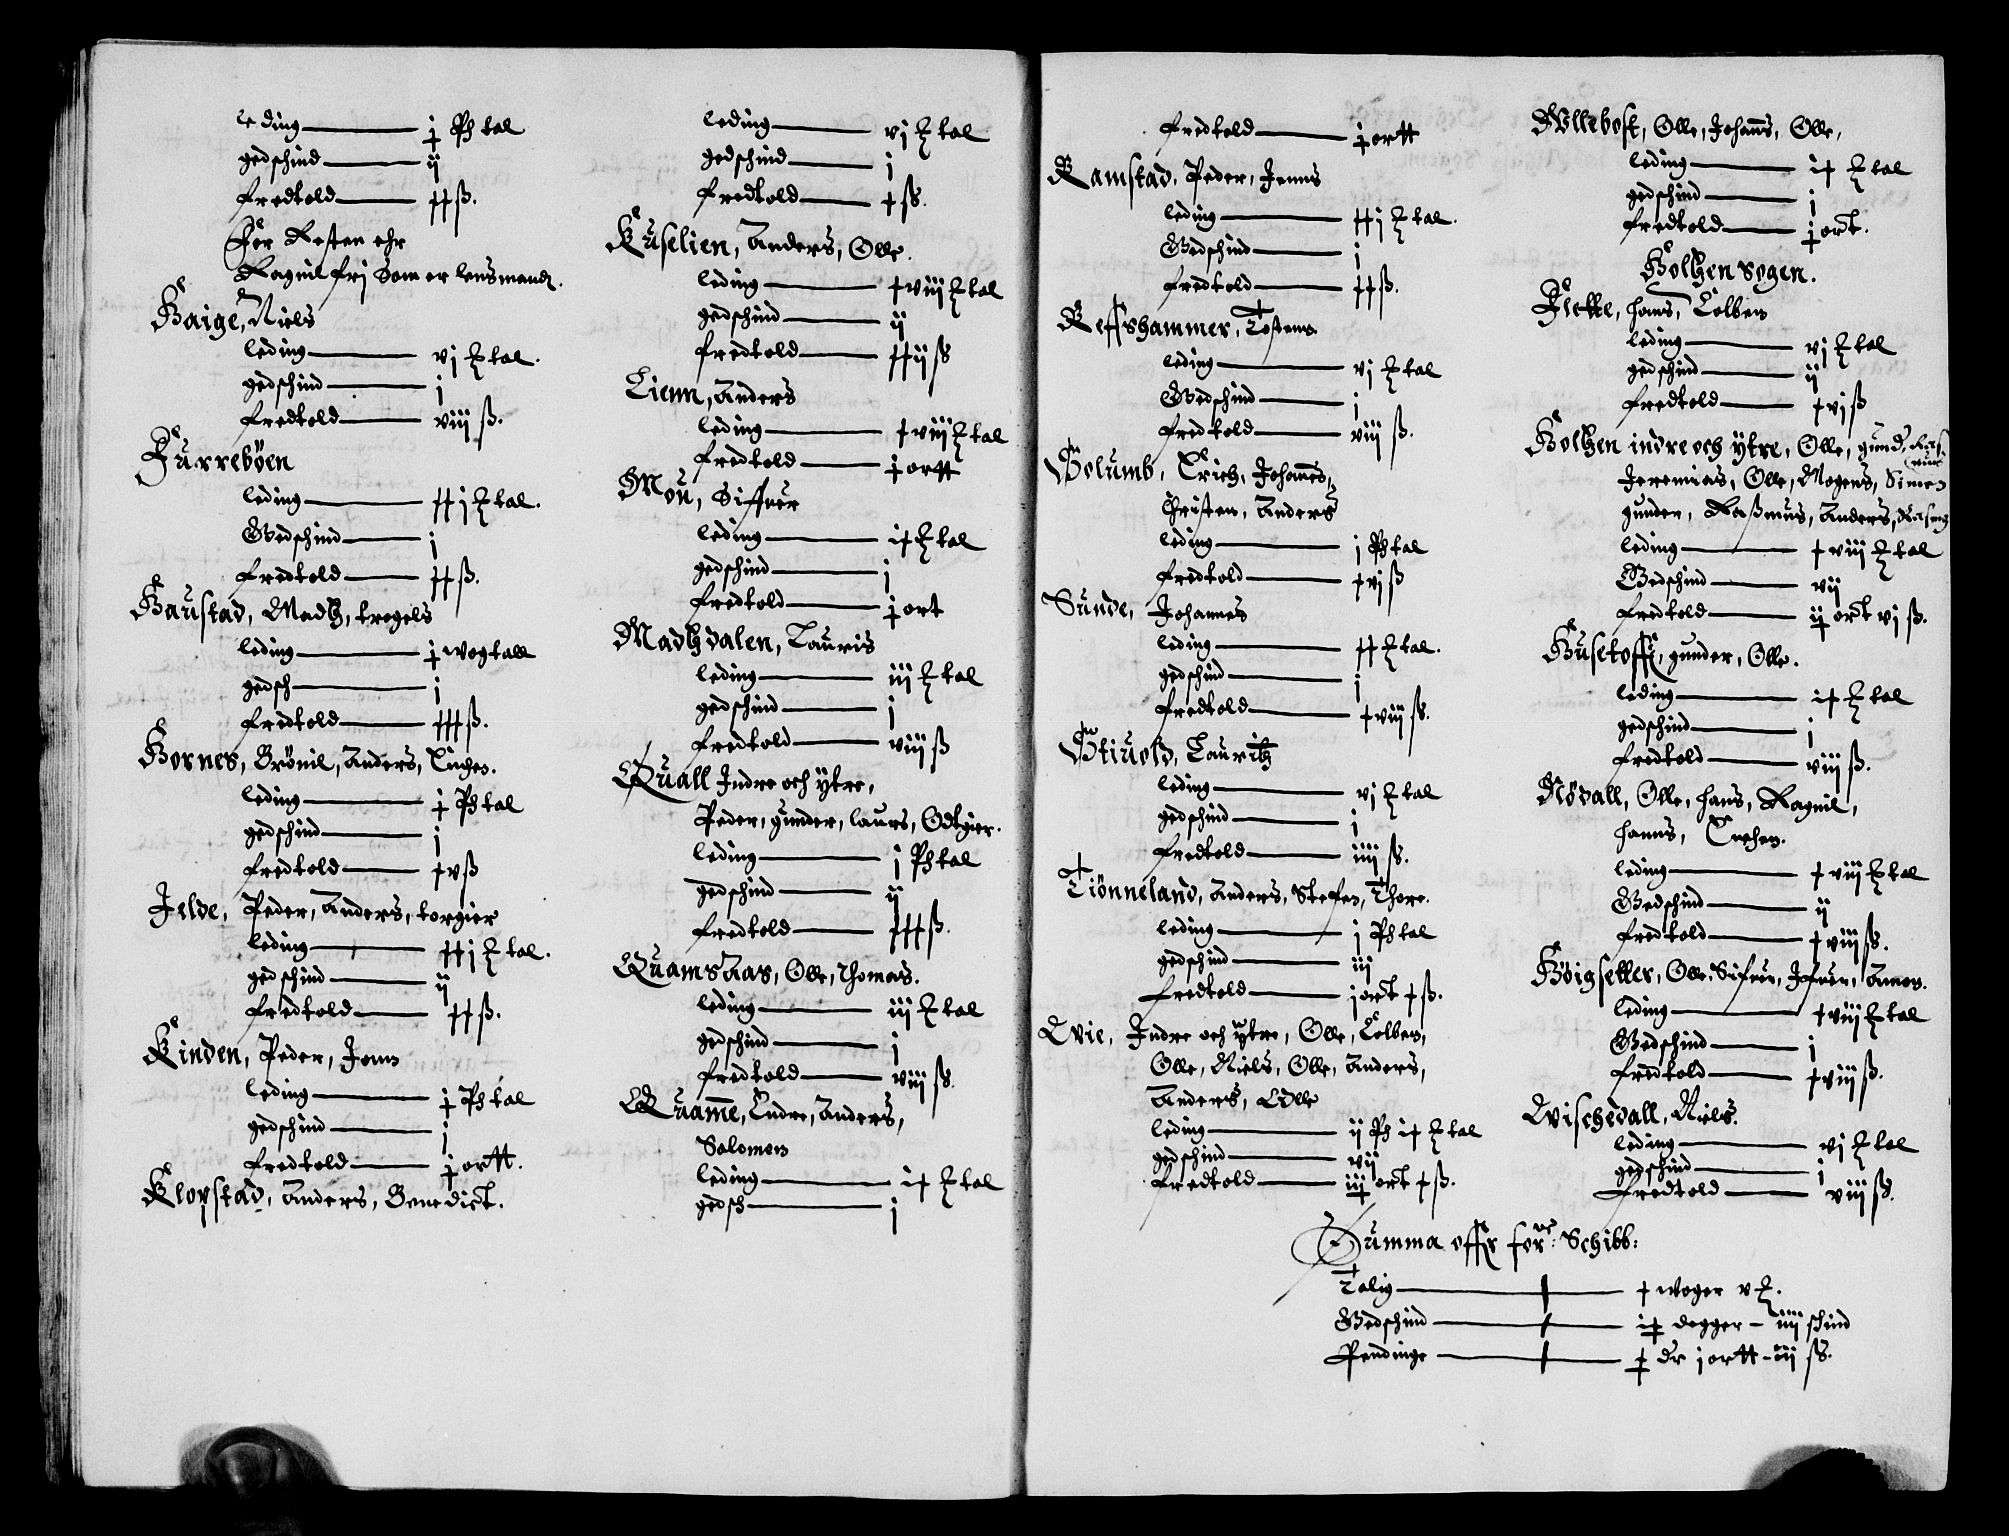 leding — j Ph tal
gedschind — ij
fredtold — xx ß.
For Resten ehr
Ragnil fri som er lensmand.
Haige, Niels
leding — vj ℔ tal.
gedschind — j
fredtold — viij ß.
Furreböen
leding — xxj ℔ tal.
Gedschind — j
fredtold — xx ß.
Haustad, Madtz, tregels
leding — j wogtall
gedsch — j
fredtold — xxx ß.
Hornes, Brönil, Anders,
leding — j Ph tal
gedschind — j
fredtold — xv ß
Jelde, Peder, Anders, torgier
leding — xxj ℔ tal.
gedschind — ij
fredtold — xx ß.
Kinden, Peder, Jenn
leding — j Ph tal
gedschind — j
fredtold — j ortt.
Klopstad, Anders, Benedict.
leding — vj ℔ tal
gedschind — j
fredtold — x ß.
Kuselien, Anders, Olle.
leding — xviij ℔ tal
gedschind — ij
fredtold — xxij ß
Lienn, Anders
leding — xviij ℔ tal
fredtold — j ortt
Mou, Siffuer
leding — ix ℔ tal
gedschind — j
fredtold — j ort
Madtzdalen, Lauris
leding — iij ℔ tal
gedschind — j
fredtold — viij ß
Quall Indre och ÿtre,
Peder, gunder, laurs, Odtgier.
leding — j Ph tal
gedschind — ij
fredtold — xxx ß.
Quamsaas, Olle, Thomas.
leding — iij ℔ tal
gedschind — j
fredtold — viij ß.
Quame, Endre, Anders,
Salomen
leding — ix ℔ tal
gedsch — j
fredtold — j ortt
Ramstad, Peder, Jenns
leding — xxj ℔ tal.
Gedschind — j
fredtold — xx ß.
Reffshammer, Tostenn
leding — vj ℔ tal
Gedschind — j
fredtold — viij ß.
Solumb, Erich, Johanes,
Christen, Anders
leding — j Ph tal
fredtold — xvj ß
Sunde, Johannes
leding — xx ℔ tal.
gedschind — j
fredtold — xviij ß.
Stiuold, Lauritz
leding — vj ℔ tal
gedschind — j
fredtold — iiij ß.
Tiönneland, Anders, Steffen, Thore.
leding — j Ph tal
gedschind — iij
fredtold — j ordt x ß.
Evie, Indre och ÿtre, Olle, Colben,
Olle, Niels, Olle, Anders,
Anders, Edlle
leding — ij Ph ix ℔ tal
gedschind — vij
fredtold — iij ort x ß.
Ollebost, Olle, Johans, Olle,
leding — ix ℔ tal
gedschind — j
fredtold — j ort.
Holtzen sogen.
Flekke, hans, Colben
leding — vj ℔ tal
gedschind — ij
fredtold — xvj ß
Holtzen indre och ÿtre, Olle, gund,
Jeremias, Olle, Mogens, Simen
gunder, Raßmus, Anders, Rasmus
leding — xviij ℔ tal
Gedschind — vij
fredtold — ij ort vj ß.
Husetofft, gunder, Olle.
leding — ix ℔ tal
gedschind — j
fredtold — viij ß.
Nödall, Olle, hans, Ragnil,
hanns,
leding — xviij ℔ tal
Gedschind — ij
fredtold — xviij ß.
Höigsetter, Olle, Sifuer, Amon.
leding — xviij ℔ tal
Gedschind — j
fredtold — xviij ß.
Evischedall, Niels.
leding — vj ℔ tal
gedschind — j
fredtold — viij ß.
Summa offr forne: Schibb:
Talig — x woger v ℔.
Gedschind — ix degger — iiij schind
Pendinge — x dr j ortt — iij ß.